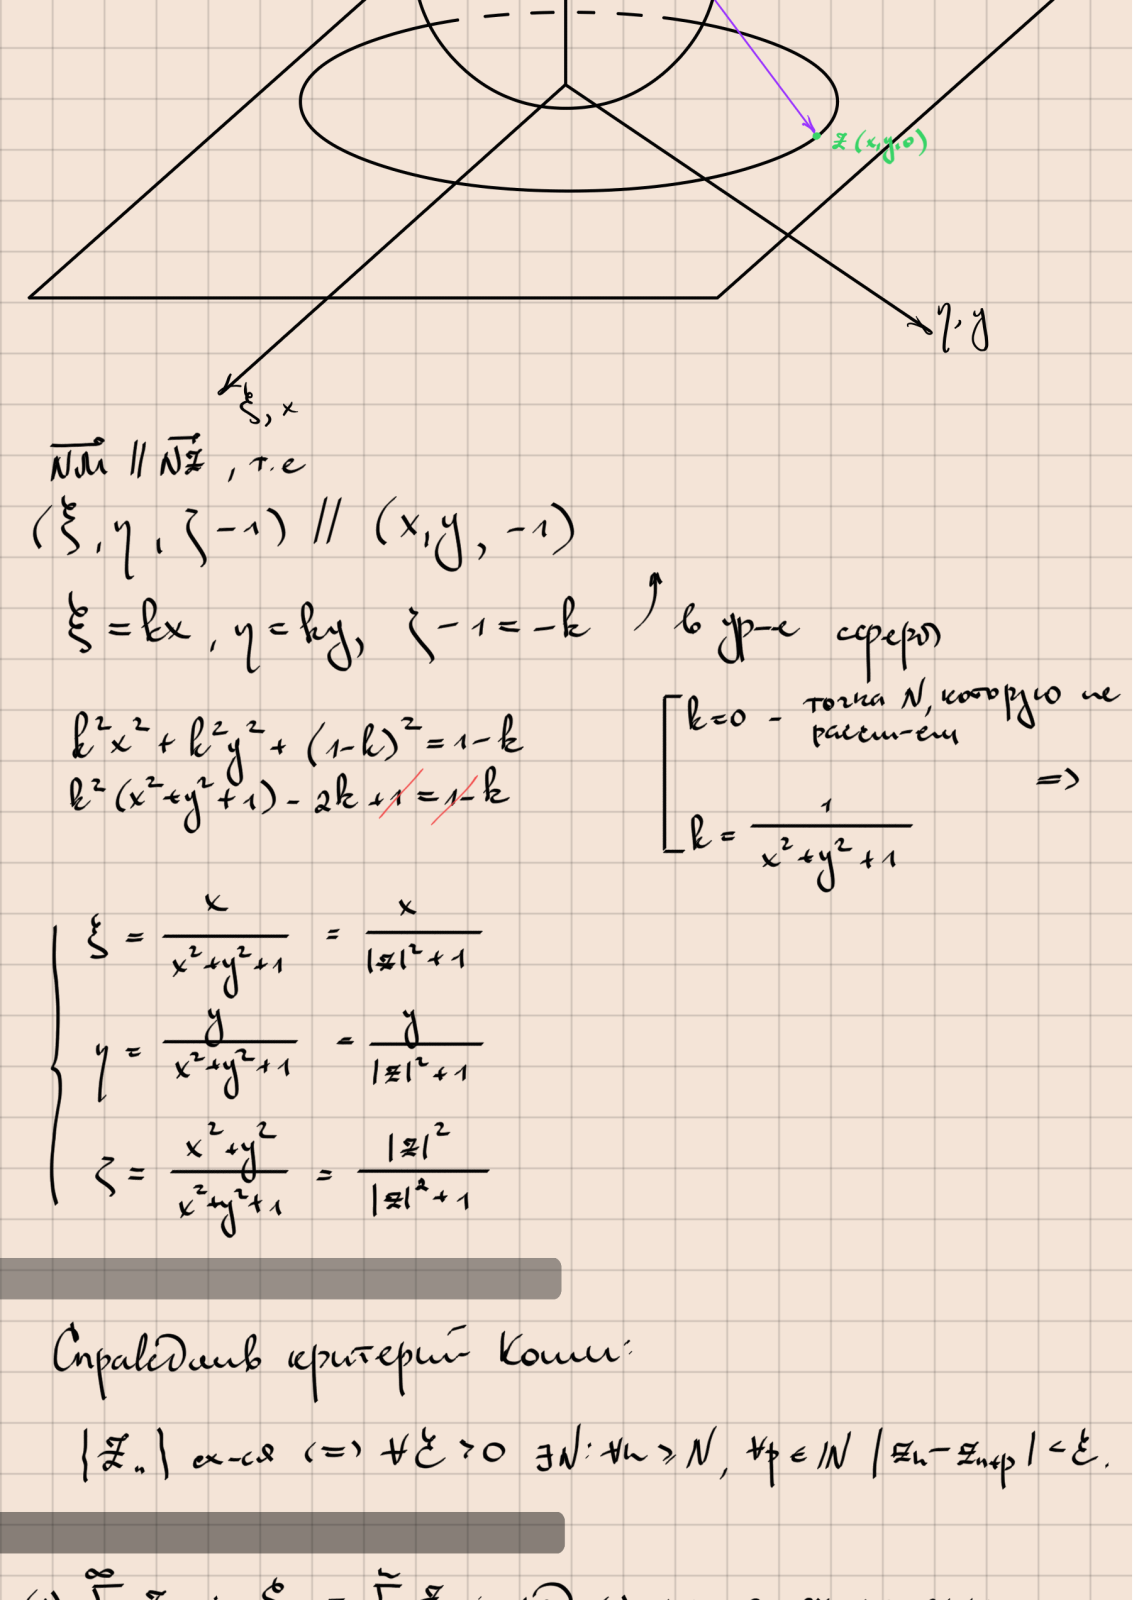 z (x,y,0)
η, y
ξ, x
NM || NZ , т.е
(ξ, η, ζ-1) // (x, y, -1)
ξ = kx, η = ky, ζ-1 = -k в ур-е сферы
k²x² + k²y² + (1-k)² = 1-k
k²(x²+y²+1) - 2k + 1 = 1-k
k=0 - точка N, которую не
рассм-ем
=>
k = 1/(x²+y²+1)
ξ = x/(x²+y²+1) = x/(|z|²+1)
η = y/(x²+y²+1) = y/(|z|²+1)
ζ = (x²+y²)/(x²+y²+1) = |z|²/(|z|²+1)
Справедлив критерий Коши:
{Zₙ} сх-ся <=> ∀ξ>0 ∃N: ∀n ≥ N, ∀p ∈ ℕ |zₙ - zₙ₊ₚ| < ξ.